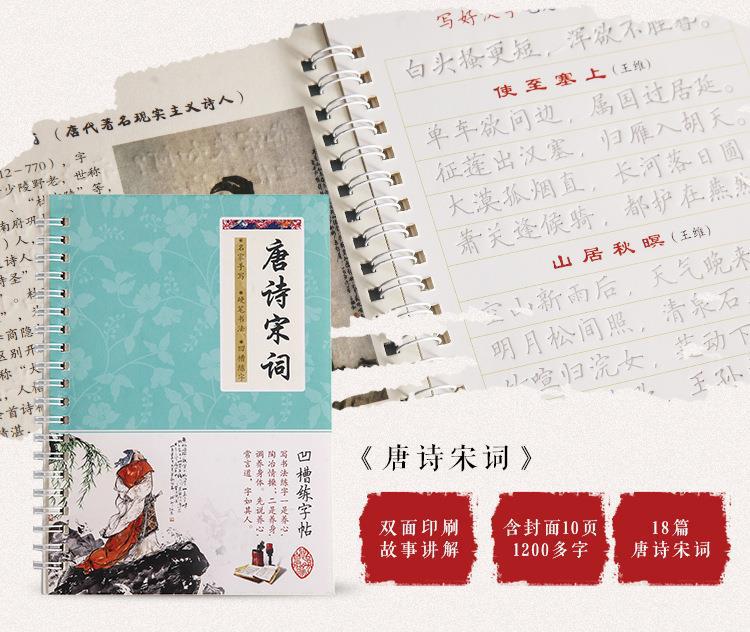 （唐代著名现实主义诗人）
12-770），字
少陵野老，世称
南府巩
）人，
诗圣”
商隐
区别开
称“大
人
首诗
湛，
写好汉字
白头搔更短，浑欲不胜簪。
使至塞上（王维）
单车欲问边，属国过居延。
征蓬出汉塞，归雁入胡天。
大漠孤烟直，长河落日圆
萧关逢候骑，都护在燕然
山居秋暝（王维）
空山新雨后，天气晚来
明月松间照，清泉石
竹喧归浣女，莲动下
王孙
唐诗宋词
名家手写 硬笔书法 凹槽练字
凹槽练字帖
写书法练字一是养心，
陶冶情操；二是养身，
调养身体。先说养心
常言道，字如其人。
《唐诗宋词》
双面印刷
故事讲解
含封面10页
1200多字
18篇
唐诗宋词